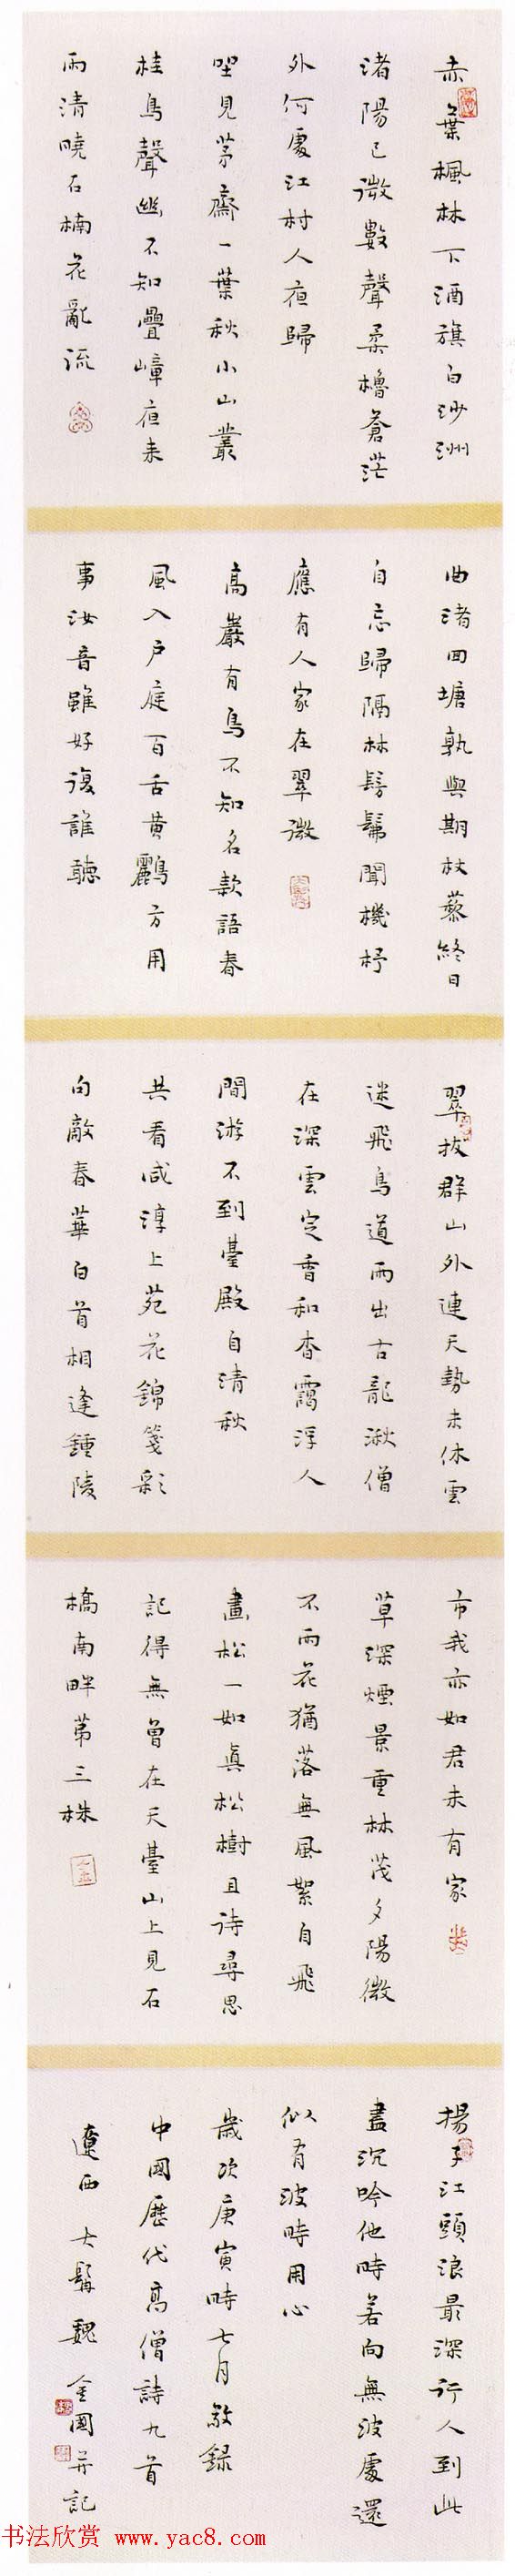 赤葉楓林下酒旗白沙洲
渚陽已微數聲柔櫓蒼茫
外何處江村人夜歸
坐見茅齋一葉秋小山叢
桂鳥聲幽不知疊嶂夜來
雨清曉石楠花亂流
曲渚回塘孰與期杖藜終日
自忘歸隔林髣髴聞機杼
應有人家在翠微
高巖有鳥不知名款語春
風入戶庭百舌黃鸝方用
事汝音雖好復誰聽
翠拔群山外連天勢未休雲
迷飛鳥道雨出古龍湫僧
在深雲定香和杳靄浮人
間游不到臺殿自清秋
共看咸淳上苑花錦箋彩
句敵春華白首相逢鍾陵
市我亦如君未有家
草深煙景重林茂夕陽微
不雨花猶落無風絮自飛
畫松一如真松樹且待尋思
記得無曾在天臺山上見石
橋南畔第三株
揚子江頭浪最深行人到此
盡沉吟他時若向無波處還
似有波時用心
歲次庚寅時七月敬錄
中國歷代高僧詩九首
遼西大髯魏金國並記
书法欣赏 www.yac8.com